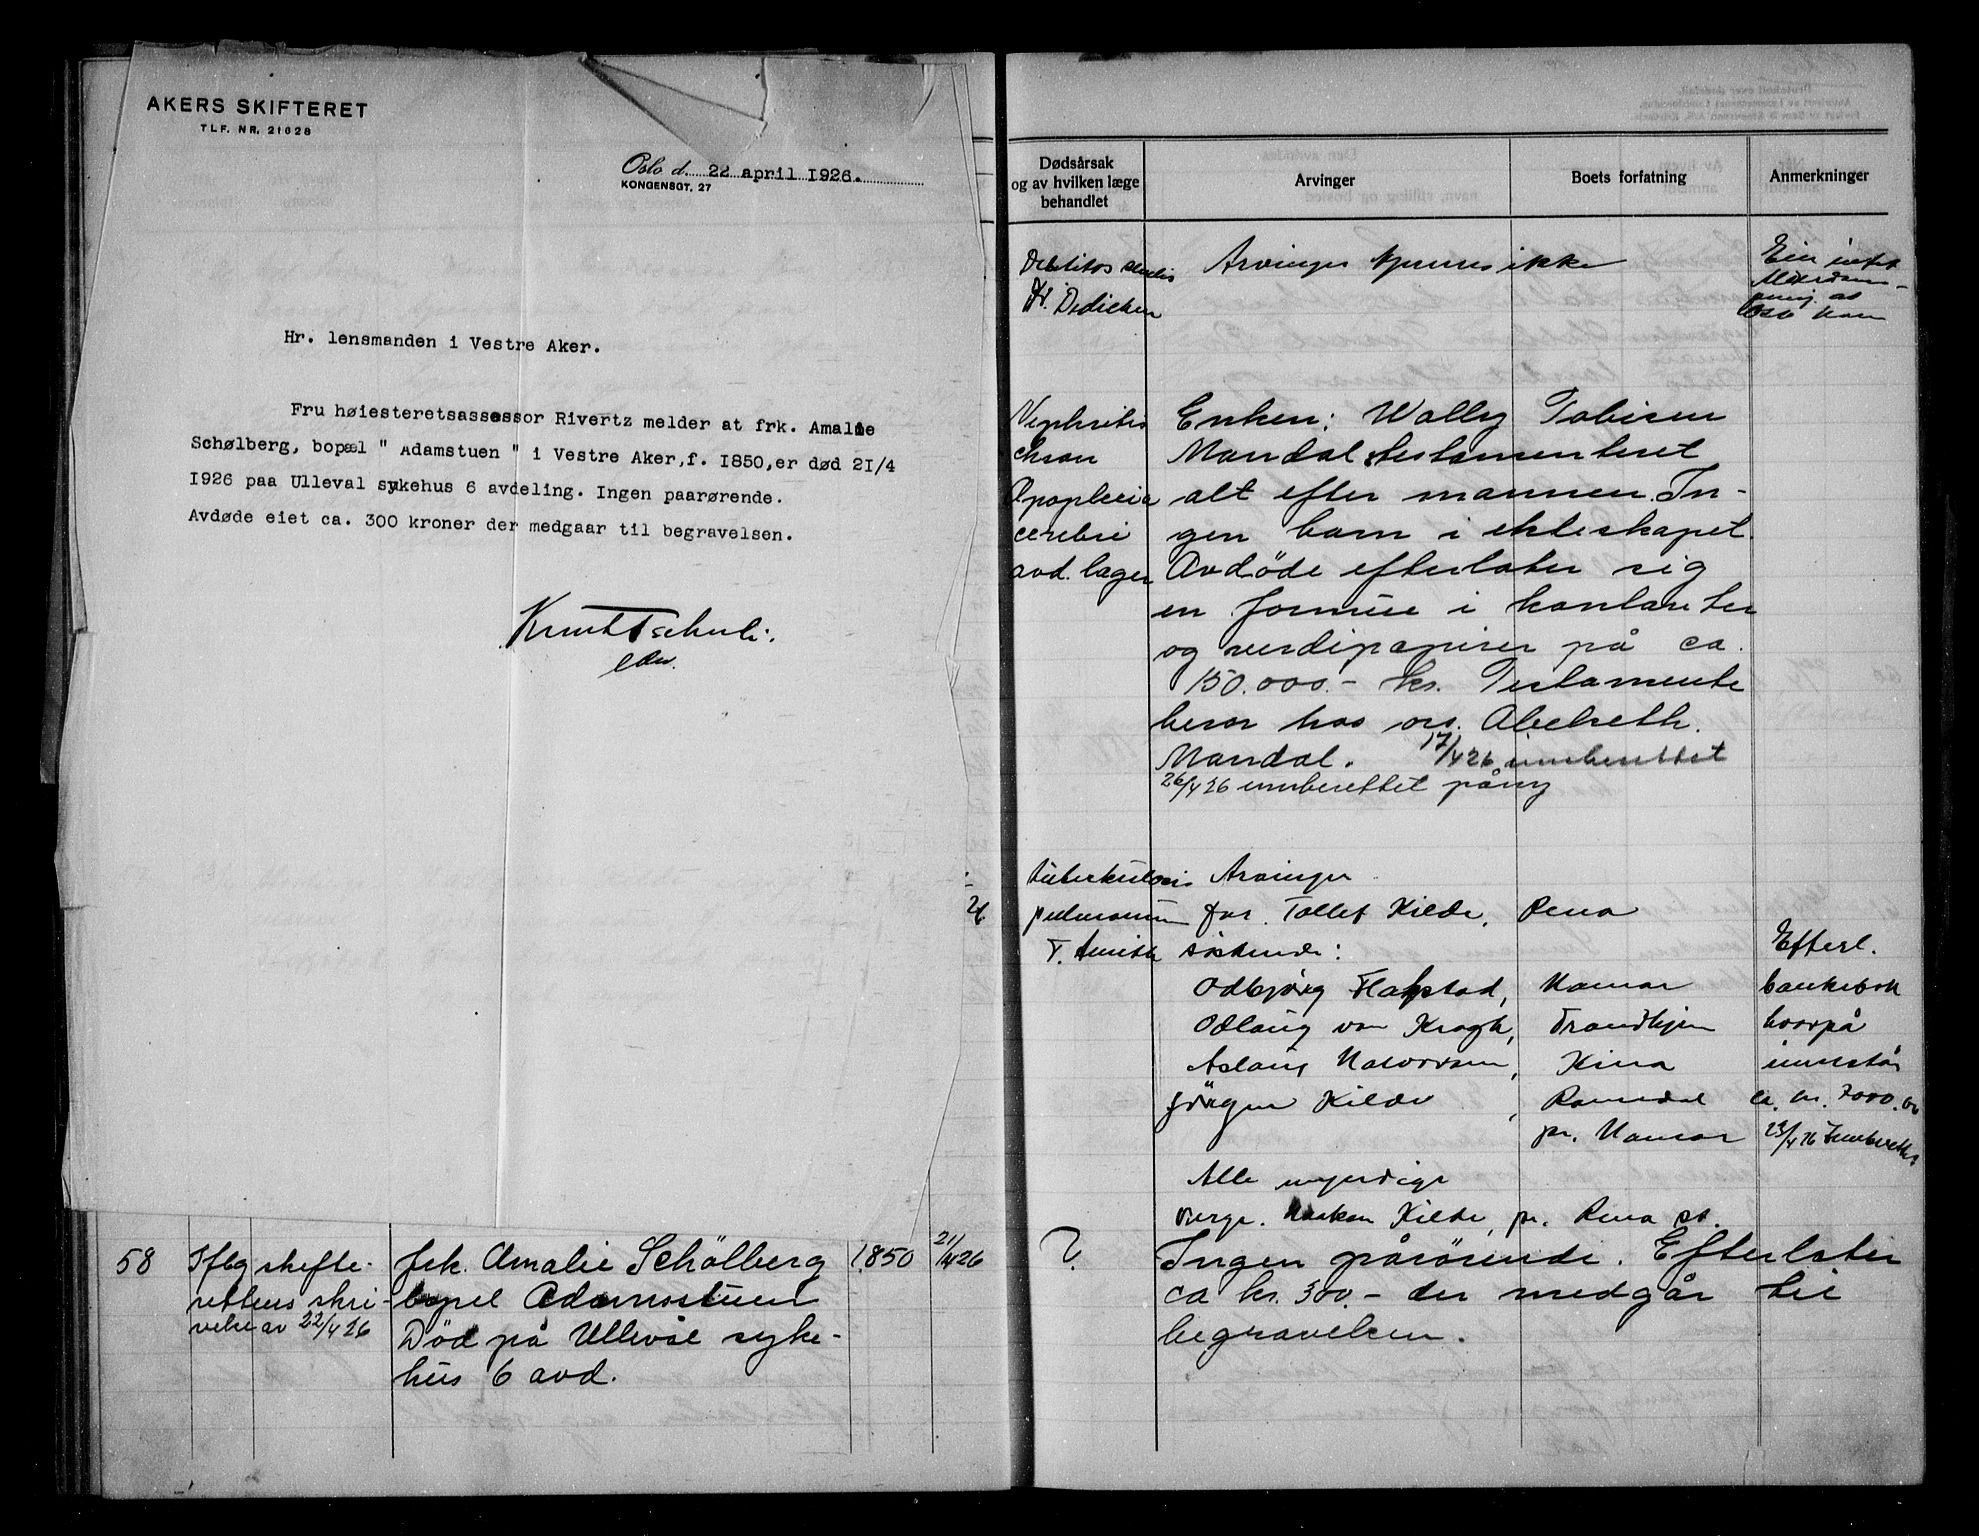 AKERS SKIFTERET
TLF. NR. 21628
Oslo d. 22 april 1926.
KONGENSGT. 27
Hr. lensmanden i Vestre Aker.
Fru høiesteretsassessor Rivertz melder at frk. Amalie
Schølberg, bopæl " Adamstuen " i Vestre Aker, f. 1850, er død 21/4
1926 paa Ulleval sykehus 6 avdeling. Ingen paarørende.
Avdøde eiet ca. 300 kroner der medgaar til begravelsen.
58
Iflg skifte-
rettens skri-
velse av 22/4 26
frk. Amalie Schölberg
bopel Adamstuen
Död på Ullevål syke-
hus 6 avd.
1850
21/4 26
Dødsårsak
og av hvilken læge
behandlet
Arvinger
Boets forfatning
Anmerkninger
Arvinger kjennes ikke
Nephritis
chron
Apoplexia
cerebri
avd. læger
Enken: Wally Tobisen
Mandal, testamenteret
alt efter mannen. In-
gen barn i ekteskapet.
Avdöde efterlater sig
en formue i kontanter
og verdipapirer på ca.
150.000.- kr. Testamente
beror hos ors. Abelseth.
Mandal. 17/4 26 innberettet
26/4 26 innberettet påny
Tuberkulosis
pulmonum
Arvinger
far. Tollef Kilde, Rena
söskende:
Odbjörg Flakstad, Hamar
Odlaug von Krogh, Trondhjem
Aslaug Halvorsen, Kina
Jörgen Kilde, Romedal
pr. Hamar
Alle myndige
Verge. Haakon Kilde, pr. Rena st.
Efterl.
bankebok
hvorpå
innestår
ca. kr. 7000.00
23/4 26 Innberettet
?
Ingen pårörende. Efterlater
ca kr. 300.- der medgår til
begravelsen.